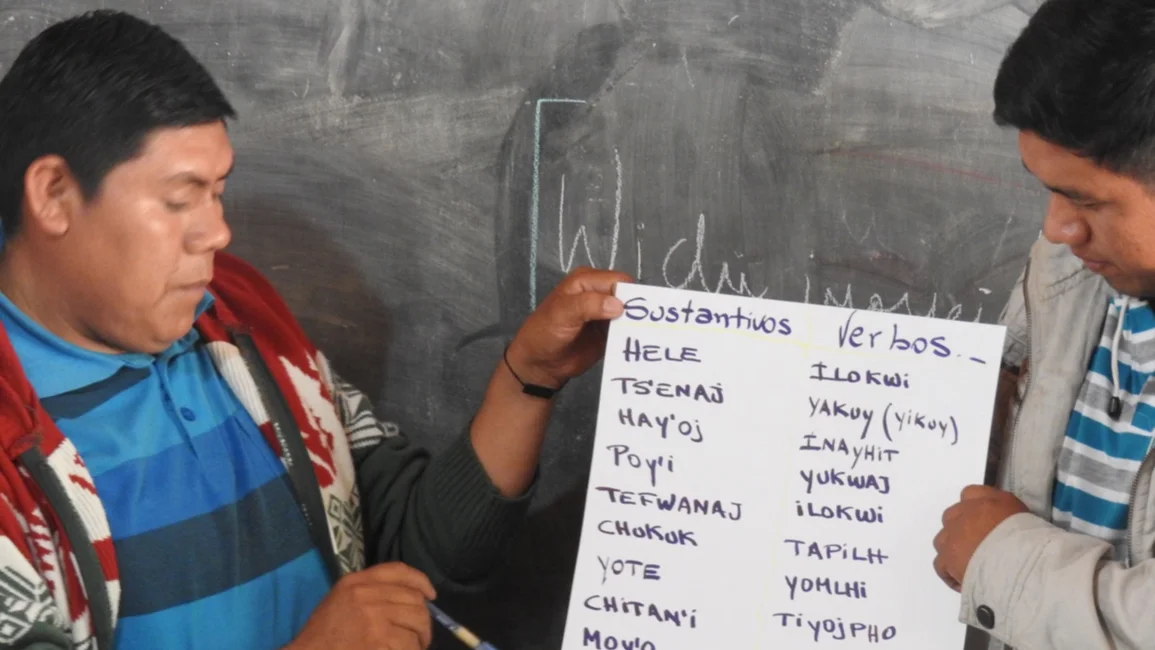 Sustantivos Verbos.-
HELE ILOKWi
TS'ENAJ YAKUY (YiKUY)
HAY'Oj INAYHIT
POY'i YUKWAJ
TEFWANAJ iLOKWi
CHUKUK TAPiLH
YOTE YOMLHi
CHiTAN'i TiyOjPHO
MOY'O